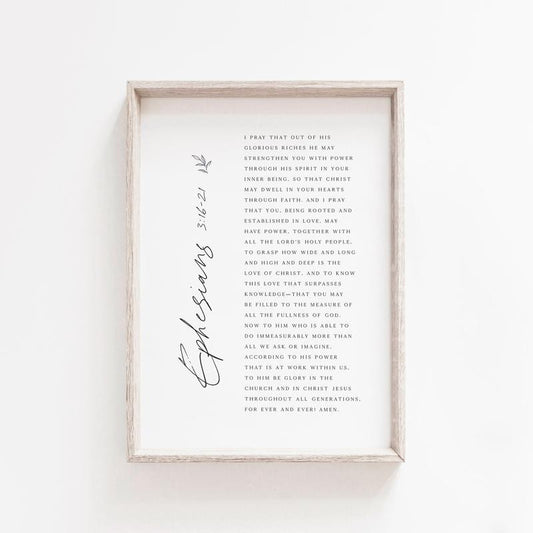 Ephesians 3:16-21
I PRAY THAT OUT OF HIS
GLORIOUS RICHES HE MAY
STRENGTHEN YOU WITH POWER
THROUGH HIS SPIRIT IN YOUR
INNER BEING, SO THAT CHRIST
MAY DWELL IN YOUR HEARTS
THROUGH FAITH. AND I PRAY
THAT YOU, BEING ROOTED AND
ESTABLISHED IN LOVE, MAY
HAVE POWER, TOGETHER WITH
ALL THE LORD'S HOLY PEOPLE,
TO GRASP HOW WIDE AND LONG
AND HIGH AND DEEP IS THE
LOVE OF CHRIST, AND TO KNOW
THIS LOVE THAT SURPASSES
KNOWLEDGE—THAT YOU MAY
BE FILLED TO THE MEASURE OF
ALL THE FULLNESS OF GOD.
NOW TO HIM WHO IS ABLE TO
DO IMMEASURABLY MORE THAN
ALL WE ASK OR IMAGINE,
ACCORDING TO HIS POWER
THAT IS AT WORK WITHIN US,
TO HIM BE GLORY IN THE
CHURCH AND IN CHRIST JESUS
THROUGHOUT ALL GENERATIONS,
FOR EVER AND EVER! AMEN.